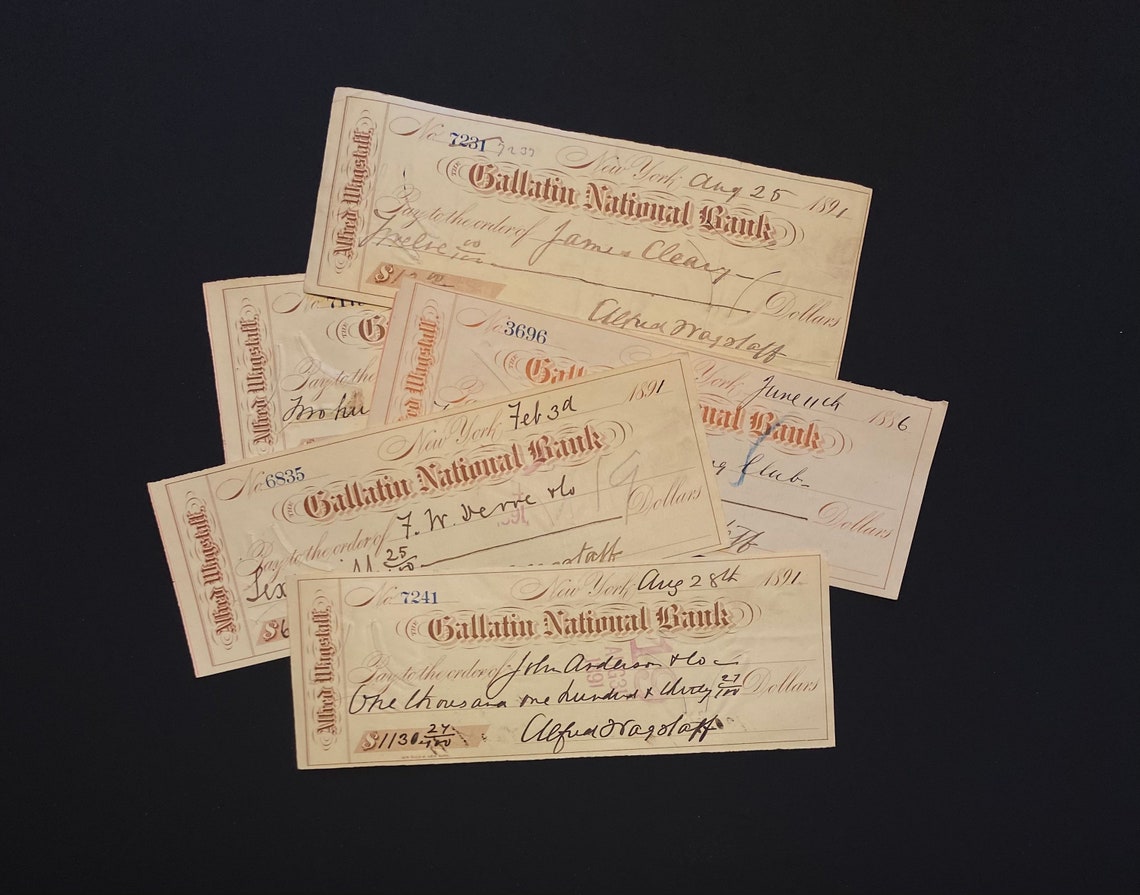 Alfred Wagstaff,
No. 7231 7237
New York, Aug 25 1891
THE Gallatin National Bank
Pay to the order of James Cleary
Twelve 00/100 Dollars
$12 00
Alfred Wagstaff
Alfred Wagstaff,
No.
THE G
Pay to the
Alfred Wagstaff,
No. 3696
York, June 11th 1886
THE Galla
nal Bank
Club
Dollars
Alfred Wagstaff,
No. 6835
New York, Feb 3d 1891
THE Gallatin National Bank
Pay to the order of F. W. & Co
25/100 Dollars
$6
Alfred Wagstaff,
No. 7241
New York, Aug 28th 1891
THE Gallatin National Bank
Pay to the order of John Anderson & Co
One thousand one hundred & thirty 27/100 Dollars
$1130 27/100
Alfred Wagstaff